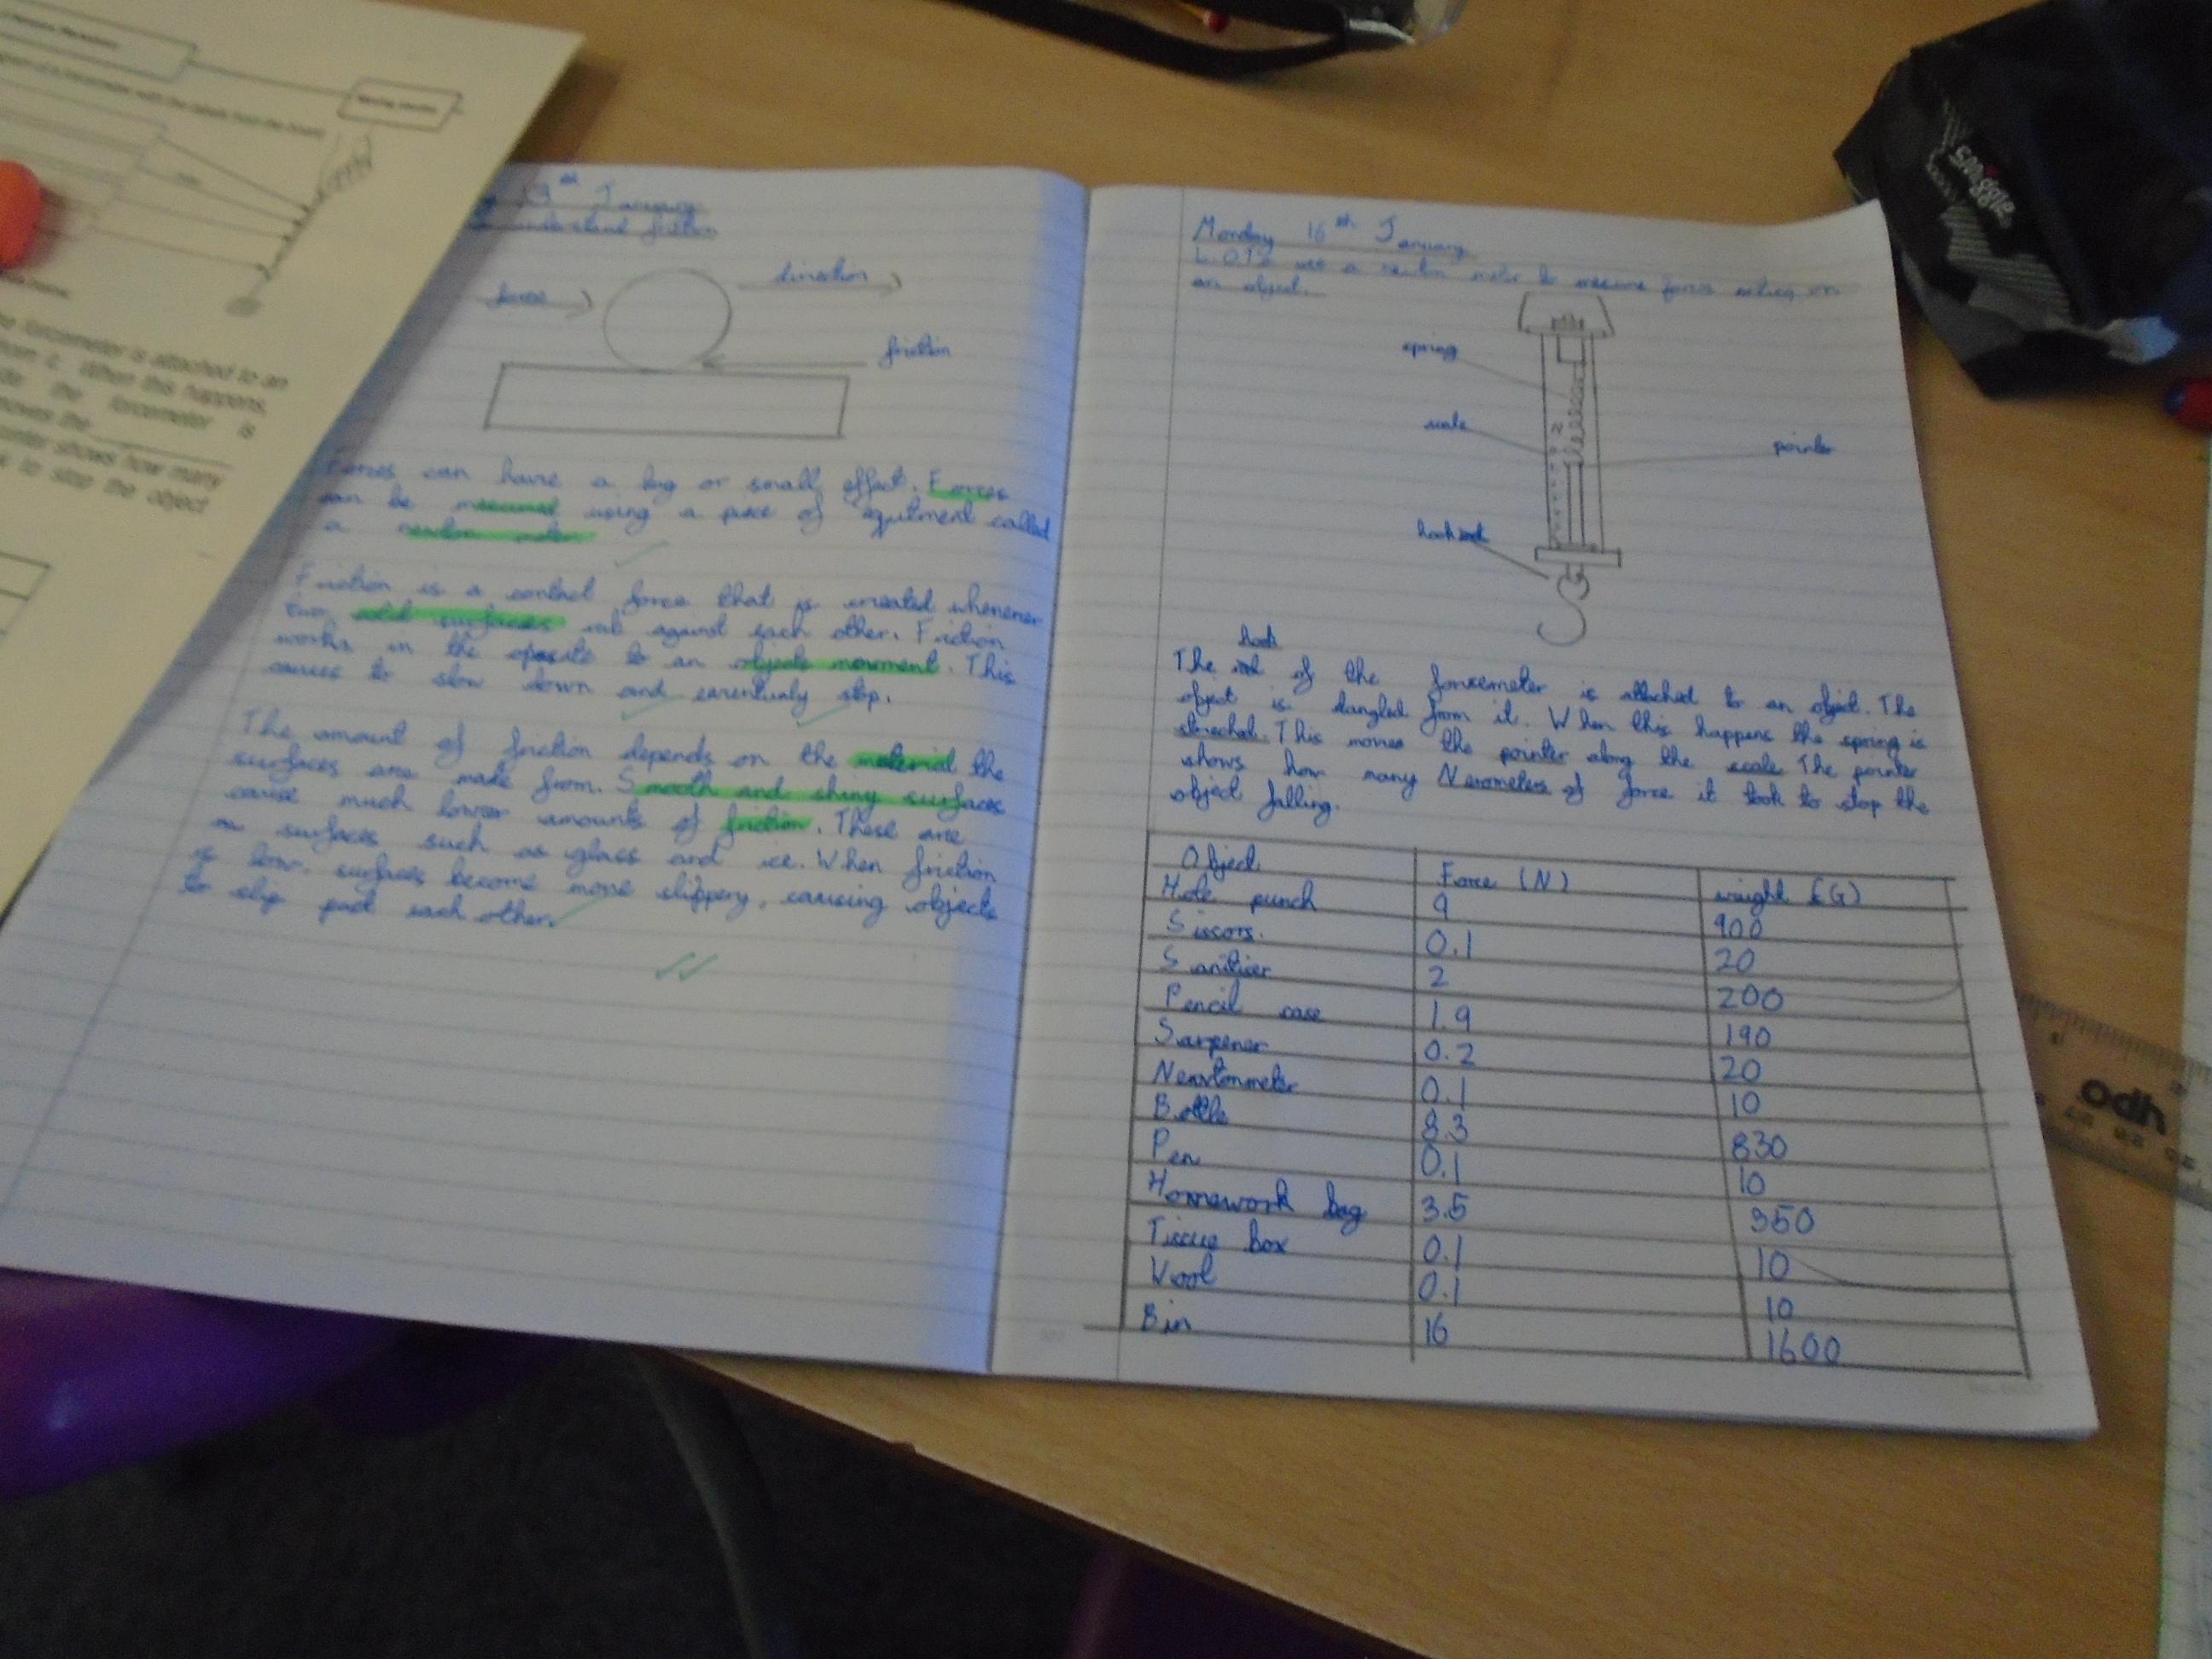 the forcemeter is attached to an
from it. When this happens,
the forcemeter is
moves the
pointer shows how many
to stop the object
January
understand friction
force
direction
friction
Forces can have a big or small effect. Forces
can be mesured using a piece of equitment called
a newton meter
Friction is a contact force that is created whenever
two solid surfaces rub against each other. Friction
works in the oposite to an objects movment. This
causes to slow down and eventualy stop.
The amount of friction depends on the material the
surfaces are made from. Smooth and shiny surfaces
cause much lower amounts of friction. These are
on surfaces such as glass and ice. When friction
is low, surfaces become more slippery, causing objects
to slip past each other.
Monday 16th January
L.O.T use a newton meter to mesure force acting on
an object.
spring
scale
pointer
hook
hook
The of the forcemeter is attached to an object. The
object is dangled from it. When this happens the spring is
streched. This moves the pointer along the scale The pointer
shows how many of force it took to stop the
object falling.
Object Force (N) weight (G)
Hole punch 9 900
Sissors. 0.1 20
Sanitiser 2 200
Pencil case 1.9 190
Sarpener 0.2 20
Newtonmeter 0.1 10
Bottle 8.3 830
Pen 0.1 10
Homework bag 3.5 350
Tissue box 0.1 10
Wool 0.1 10
Bin 16 1600
smiggle